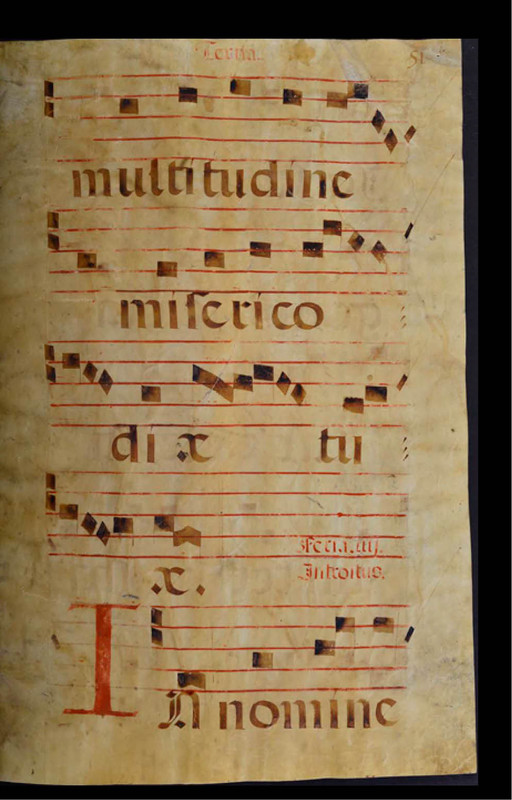 51
multitudine
miserico
di æ tu
æ.
Feria.iiij.
Introitus.
IN nomine